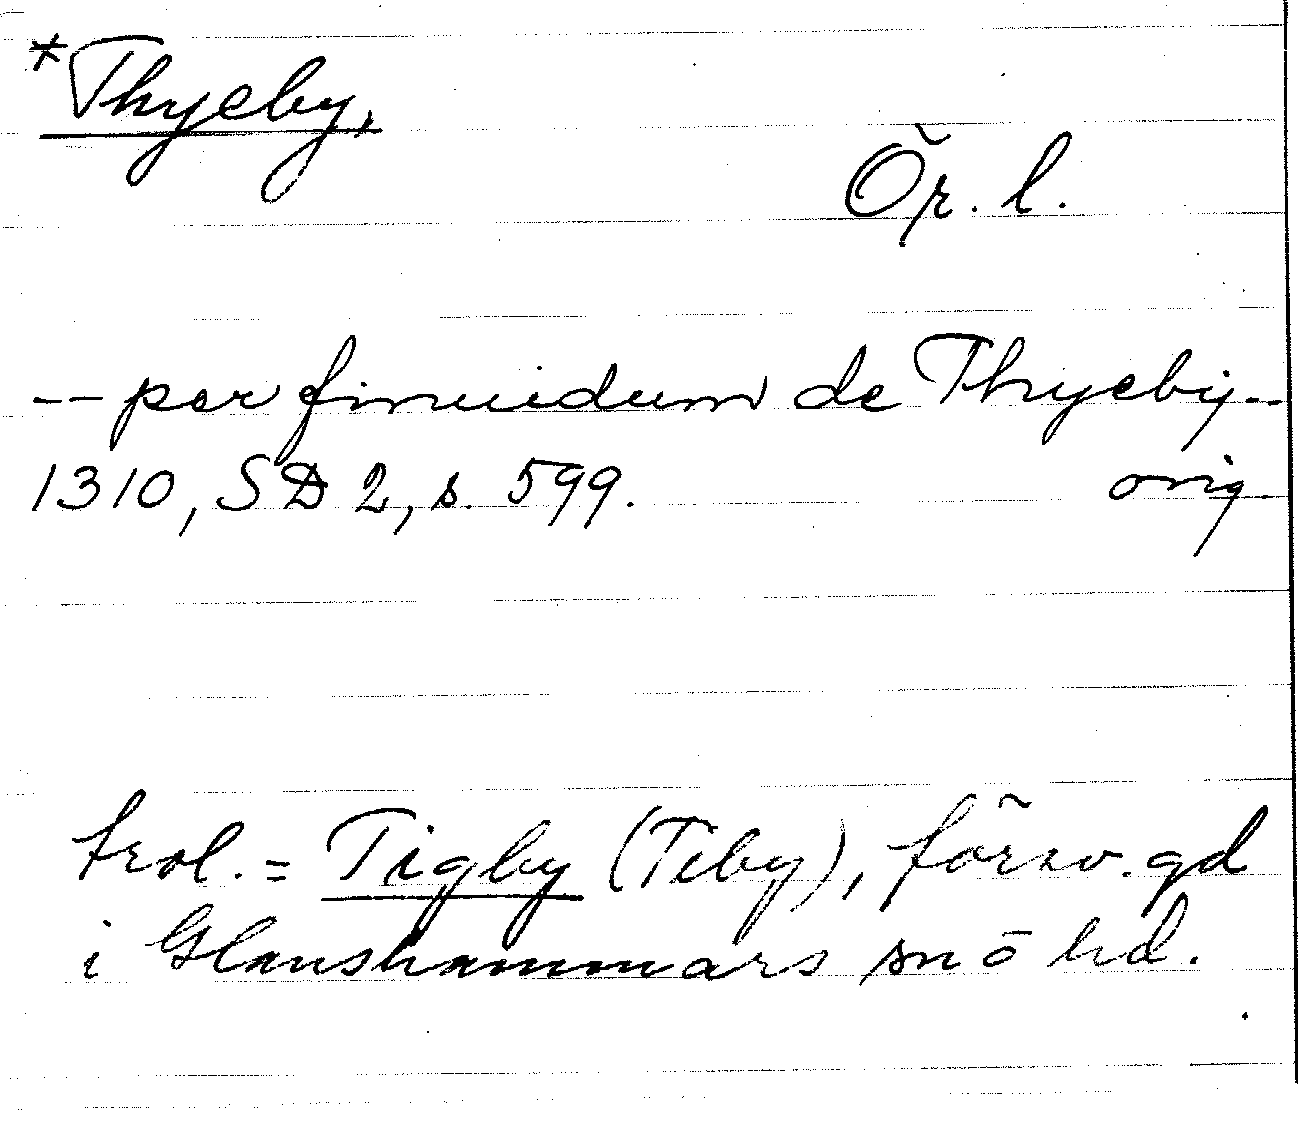 *Thyeby,
Ör. l.
-- per finundum de Thyeby --
1310, SD 2, s. 599. orig.
trol. = Tigby (Teby), försv. gd
i Glanshammars sn ö hd.